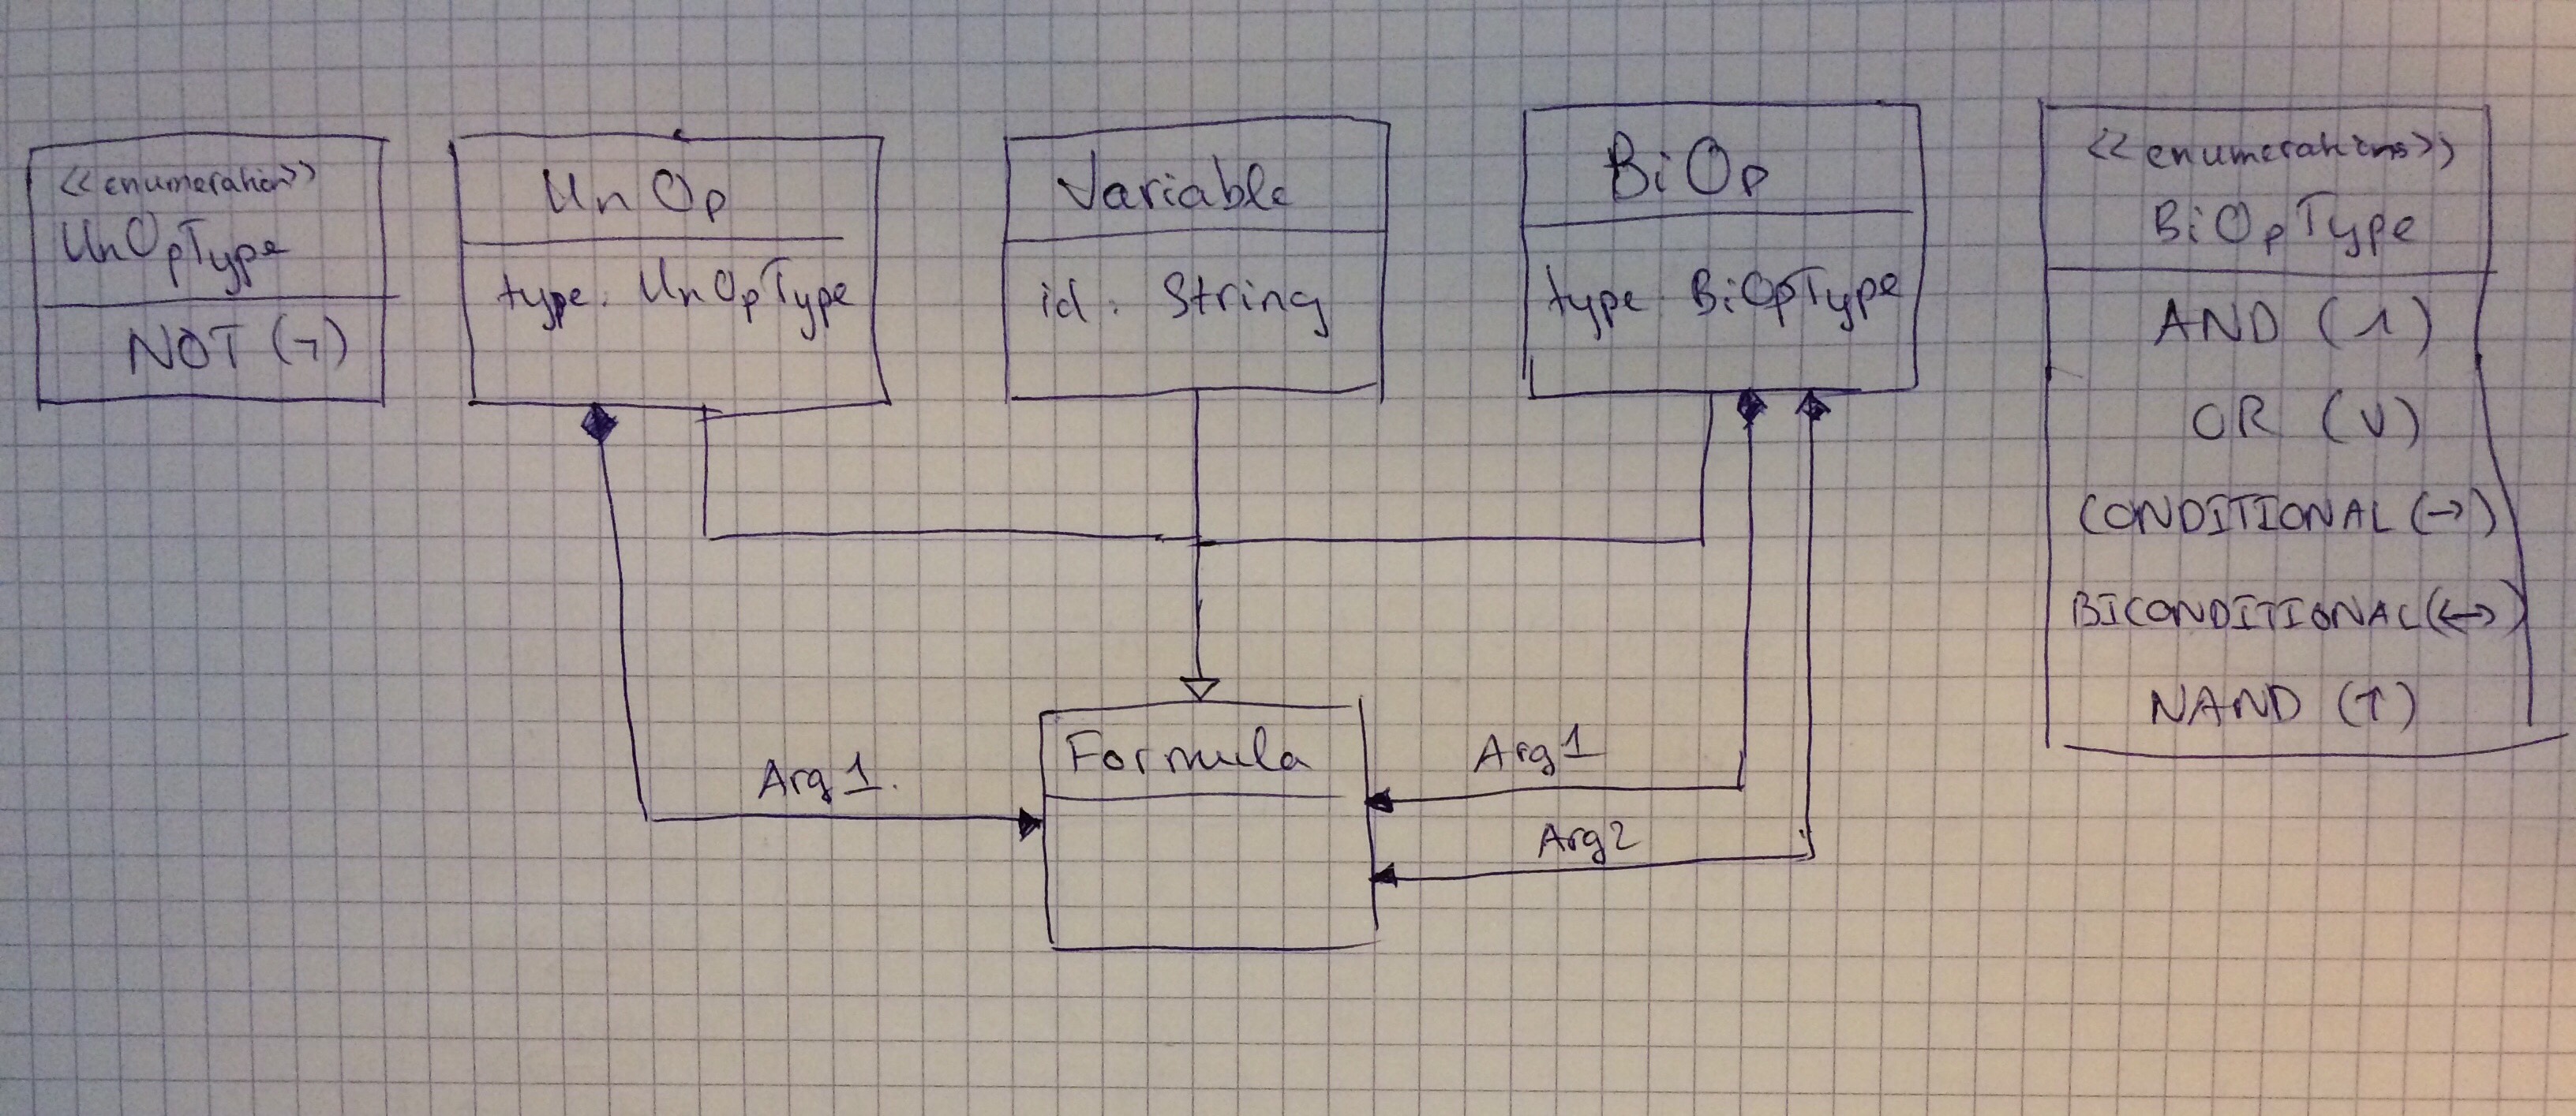 <<enumeration>>
UnOpType
NOT (¬)
UnOp
type: UnOpType
Variable
id: String
BiOp
type: BiOpType
<<enumerations>>
BiOpType
AND (∧)
OR (∨)
CONDITIONAL (→)
BICONDITIONAL (↔)
NAND (↑)
Formula
Arg1.
Arg1
Arg2